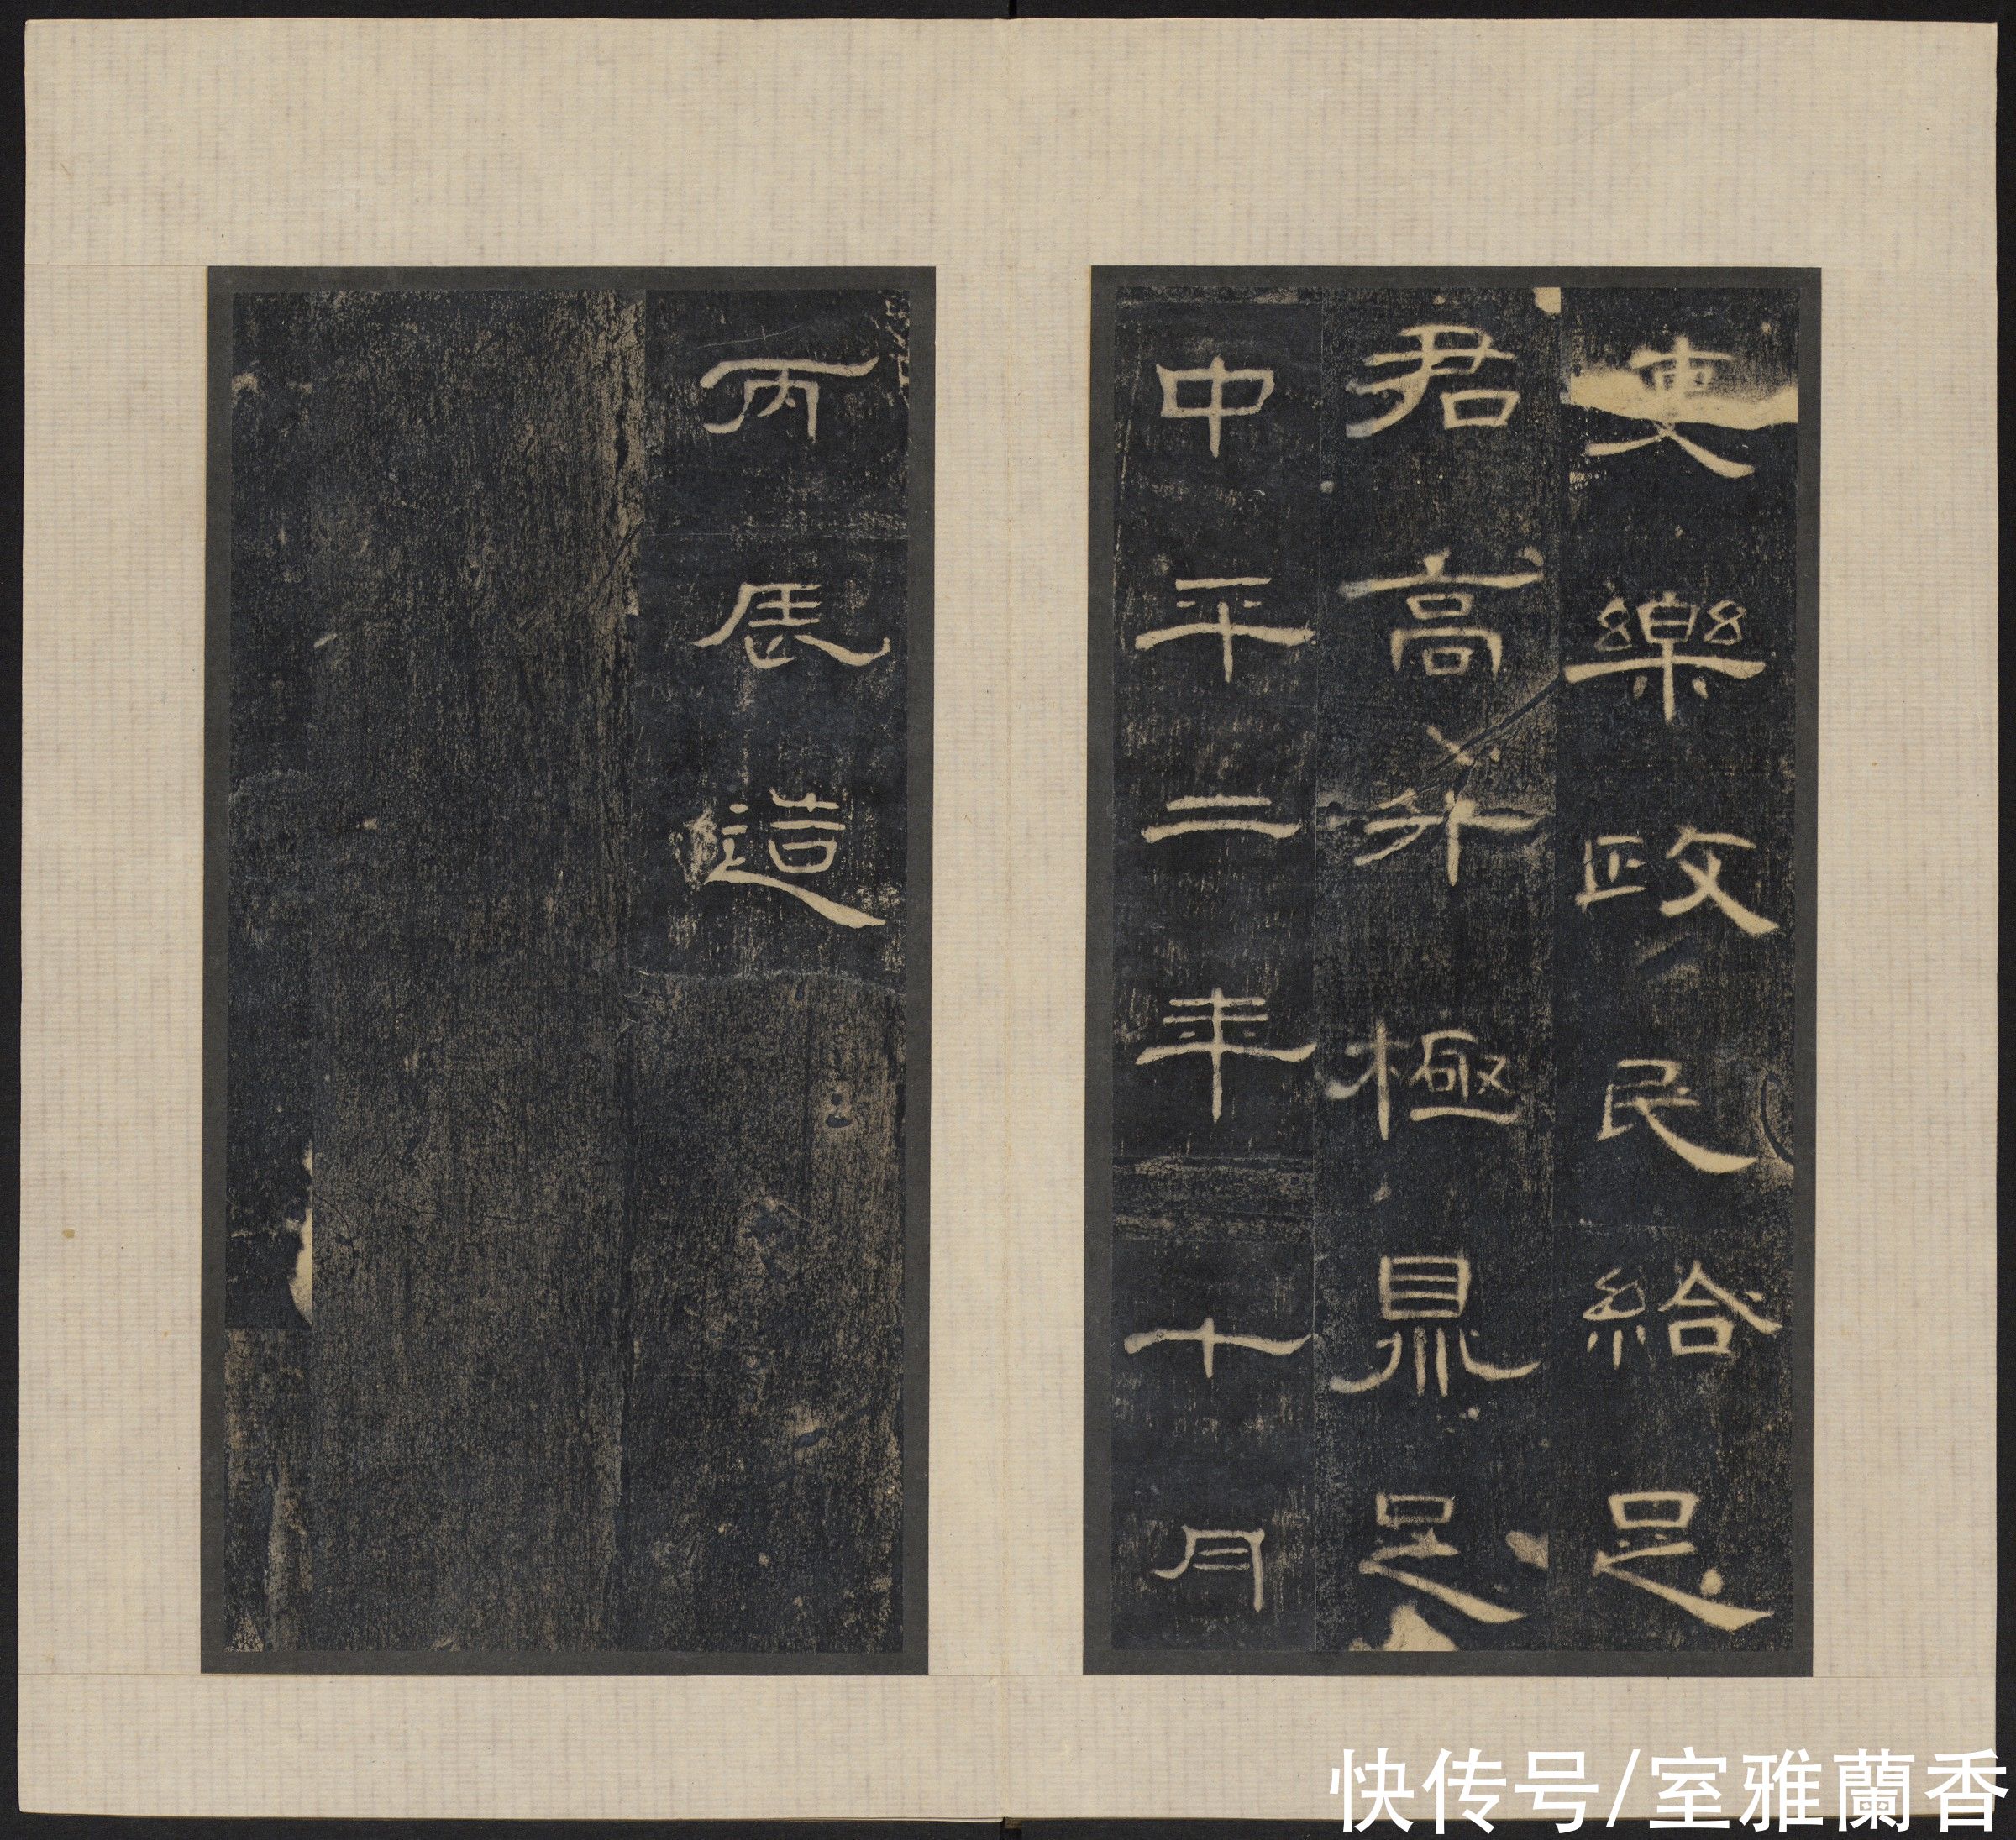 吏樂政民給足
君高升極鼎足
中平二年十月
丙辰造
快传号/室雅蘭香